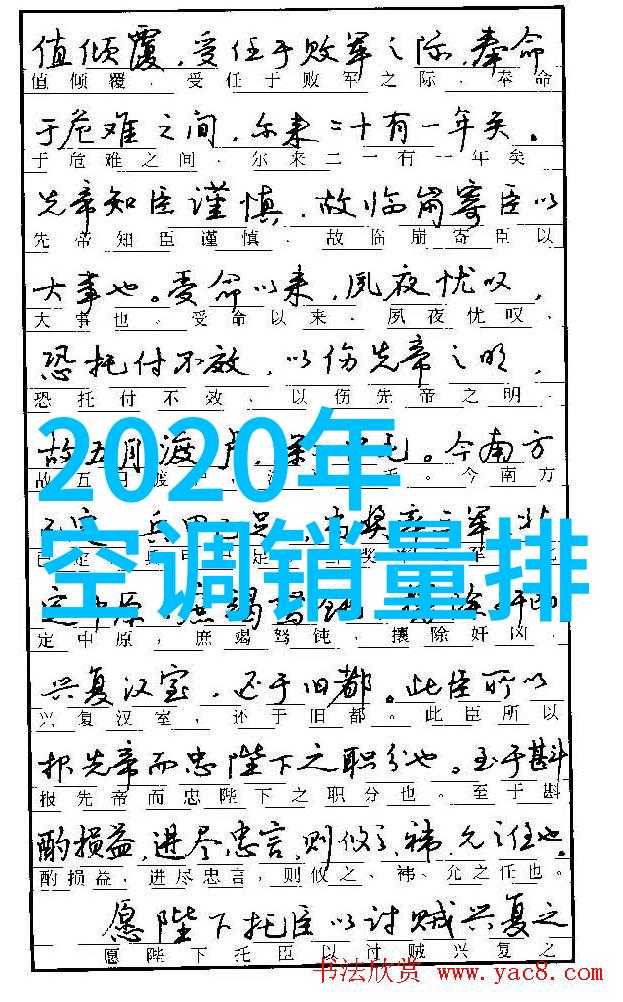 值倾覆,受任于败军之际,奉命
值倾覆,受任于败军之际,奉命
于危难之间,尔来二十有一年矣。
于危难之间,尔来二一有一年矣
先帝知臣谨慎,故临崩寄臣以
先帝知臣谨慎,故临崩寄臣以
大事也。受命以来,夙夜忧叹,
大事也。受命以来,夙夜忧叹,
恐托付不效,以伤先帝之明,
恐托付不效,以伤先帝之明,
2020年
故五月渡 。今南方
故五 今南方
空调销量排
兵 足
定中原,庶竭驽钝,
定中原,庶竭驽钝,攘除奸凶,
兴复汉室,还于旧都。此臣所以
兴复汉室,还于旧都。此臣所以
报先帝而忠陛下之职分也。至于斟
报先帝而忠陛下之职分也。至于斟
酌损益,进尽忠言,则攸之、祎、允之任也。
酌损益,进尽忠言,则攸之、祎、允之任也。
愿陛下托臣以讨贼兴复之
愿陛下托臣以讨贼兴复之
书法欣赏 www.yac8.com